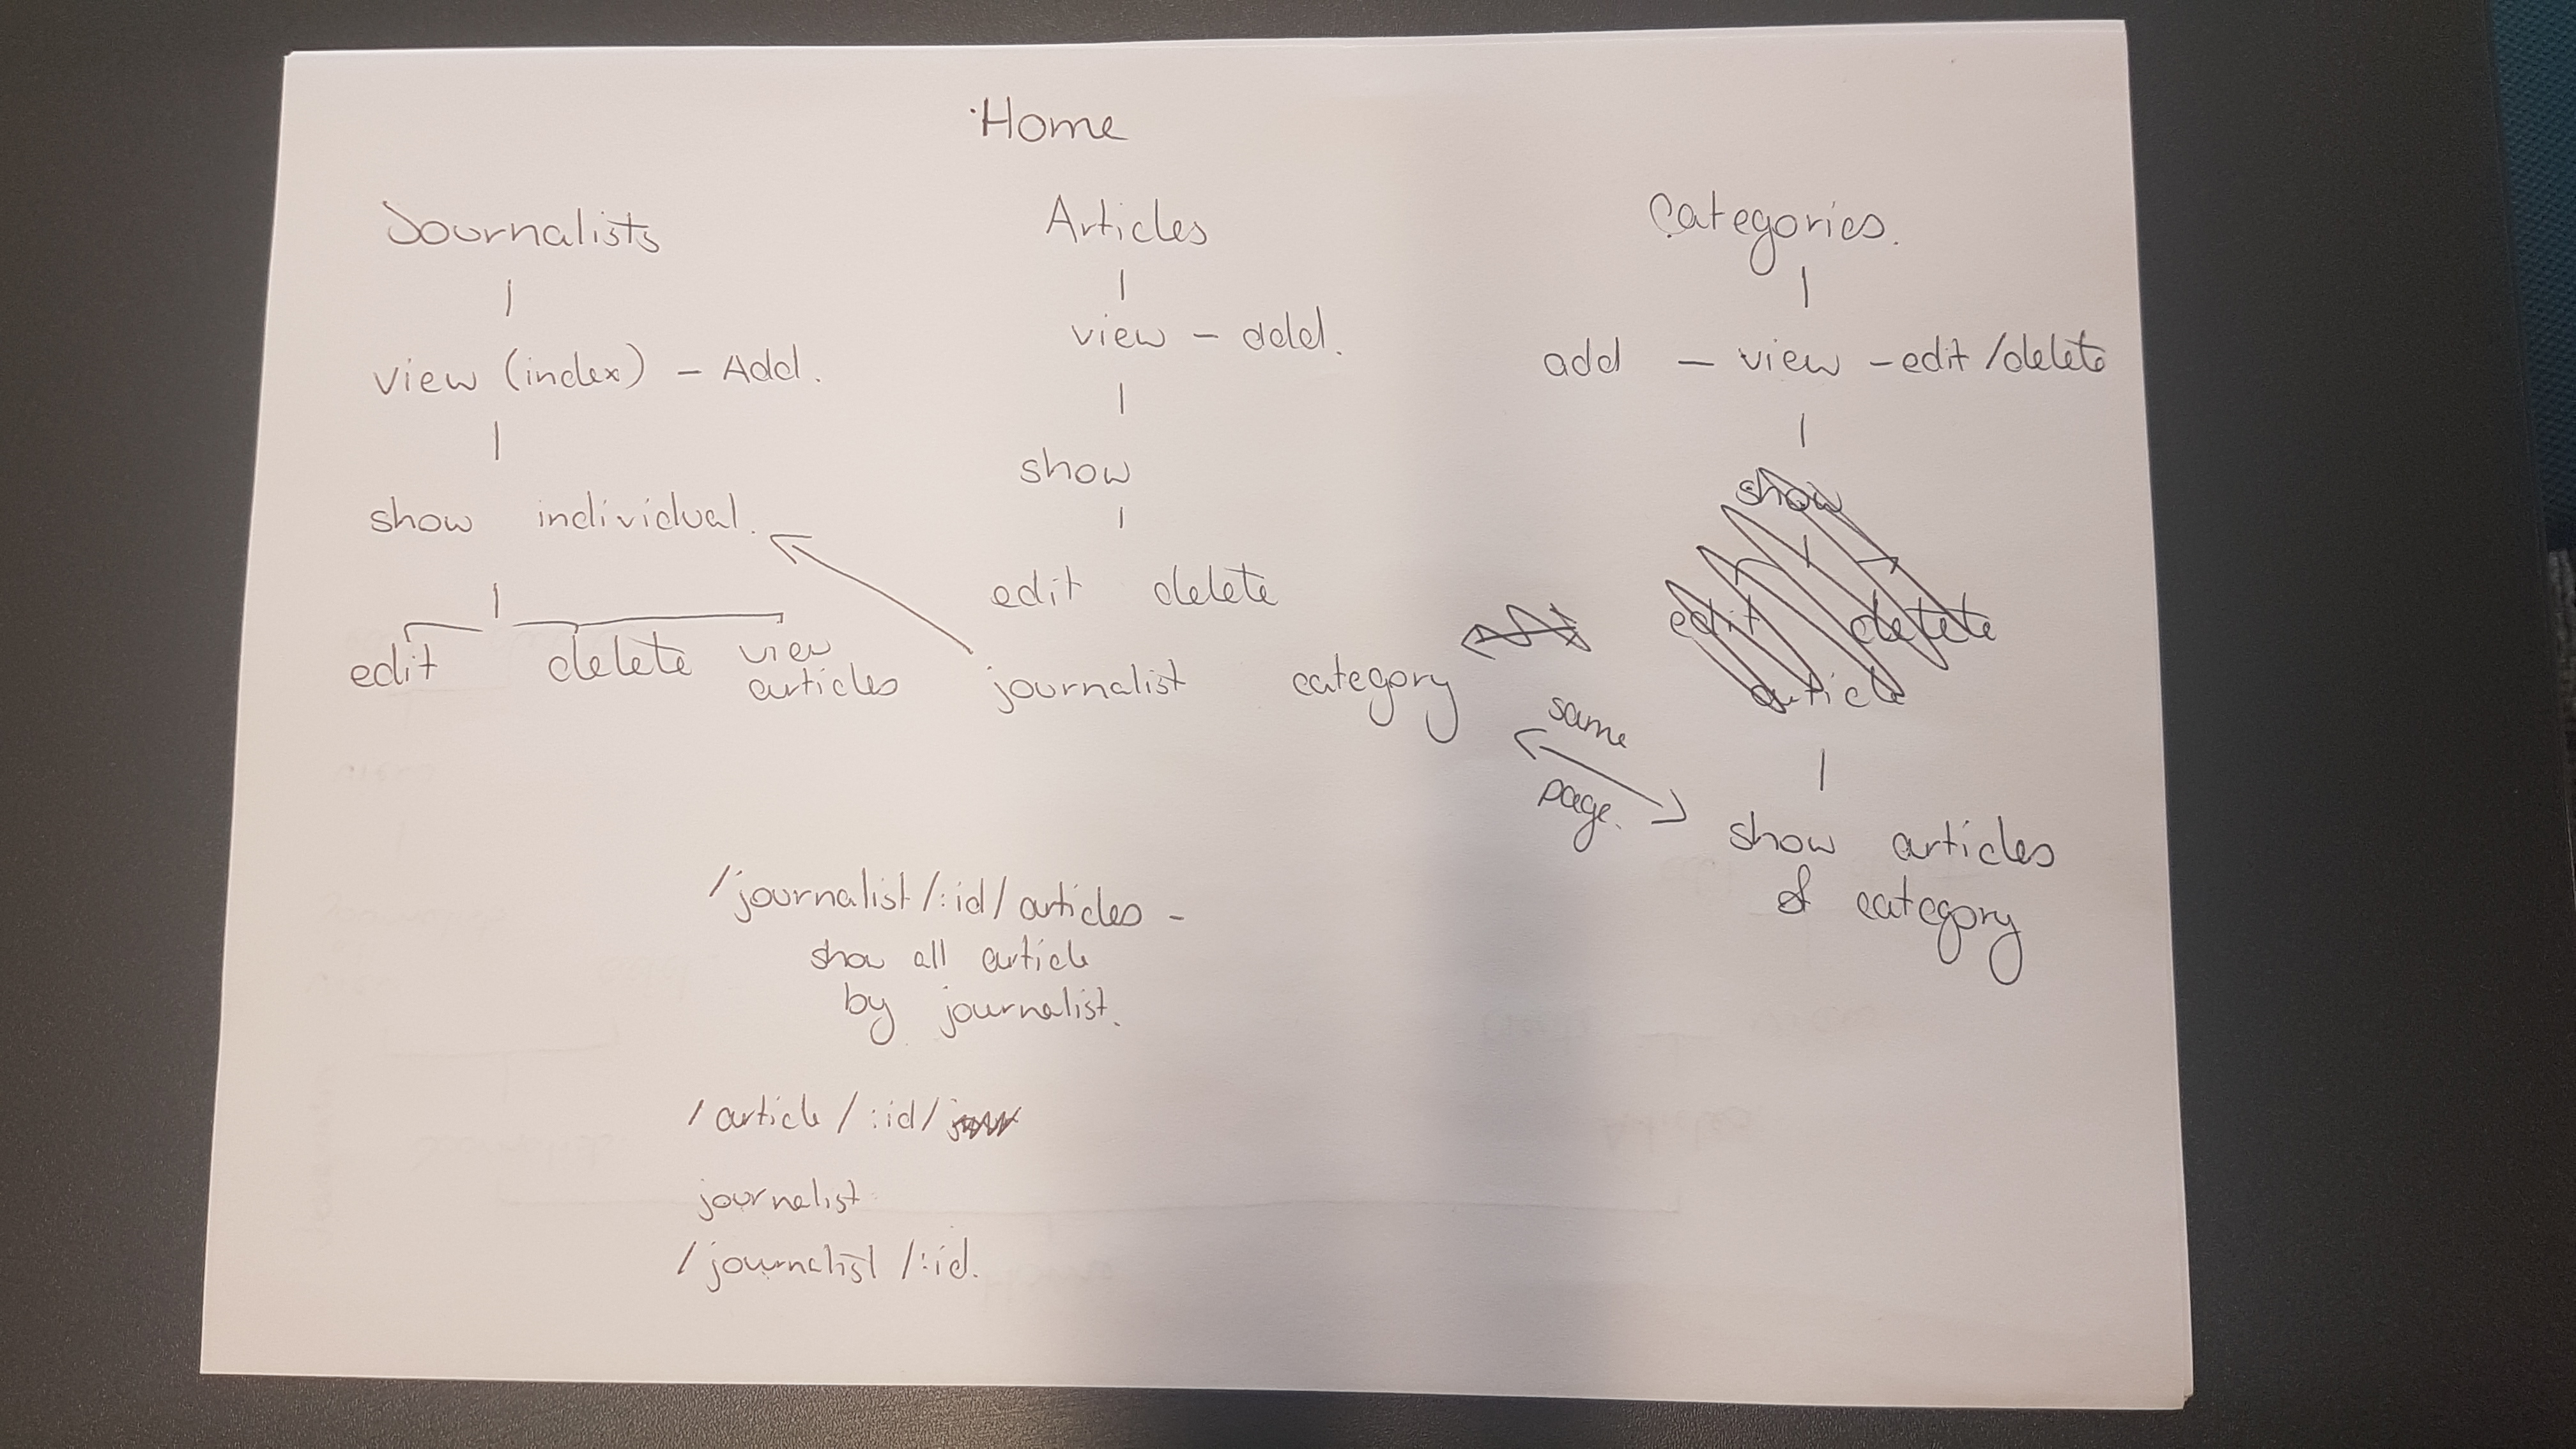 Home
Journalists
view (index) - Add.
show individual.
edit delete view articles
Articles
view - add.
show
edit delete
journalist category
Categories.
add - view - edit/delete
show
edit delete
article
same
page.
show articles
of category
/journalist/:id/articles -
show all article
by journalist.
/article/:id/
journalist
/journalist/:id.